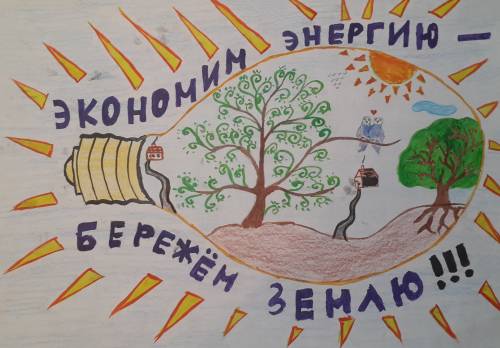 ЭКОНОМИМ ЭНЕРГИЮ —
БЕРЕЖЁМ ЗЕМЛЮ!!!